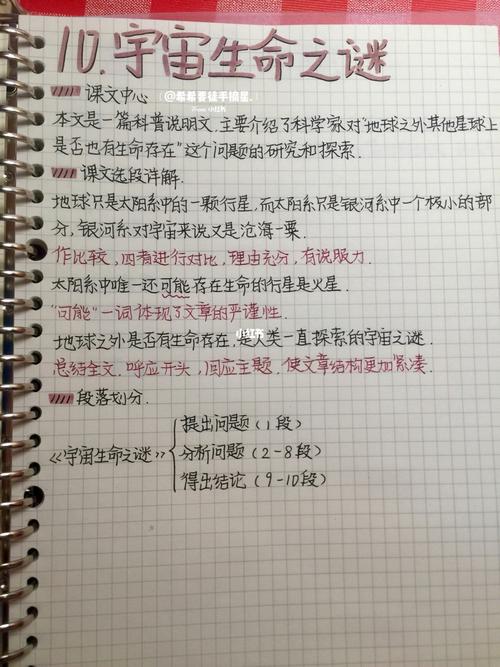 10.宇宙生命之谜
课文中心
@希希要徒手摘星.
本文是一篇科普说明文.主要介绍了科学家对"地球之外其他星球上
是否也有生命存在"这个问题的研究和探索.
课文选段详解.
地球只是太阳系中的一颗行星,而太阳系只是银河系中一个极小的部
分,银河系对宇宙来说又是沧海一粟.
作比较,四者进行对比,理由充分,有说服力.
太阳系中唯一还可能存在生命的行星是火星.
"可能"一词体现了文章的严谨性.
小红书
地球之外是否有生命存在,是人类一直探索的宇宙之谜.
总结全文.呼应开头,回应主题,使文章结构更加紧凑.
段落划分.
提出问题(1段)
《宇宙生命之谜》分析问题(2-8段)
得出结论(9-10段)